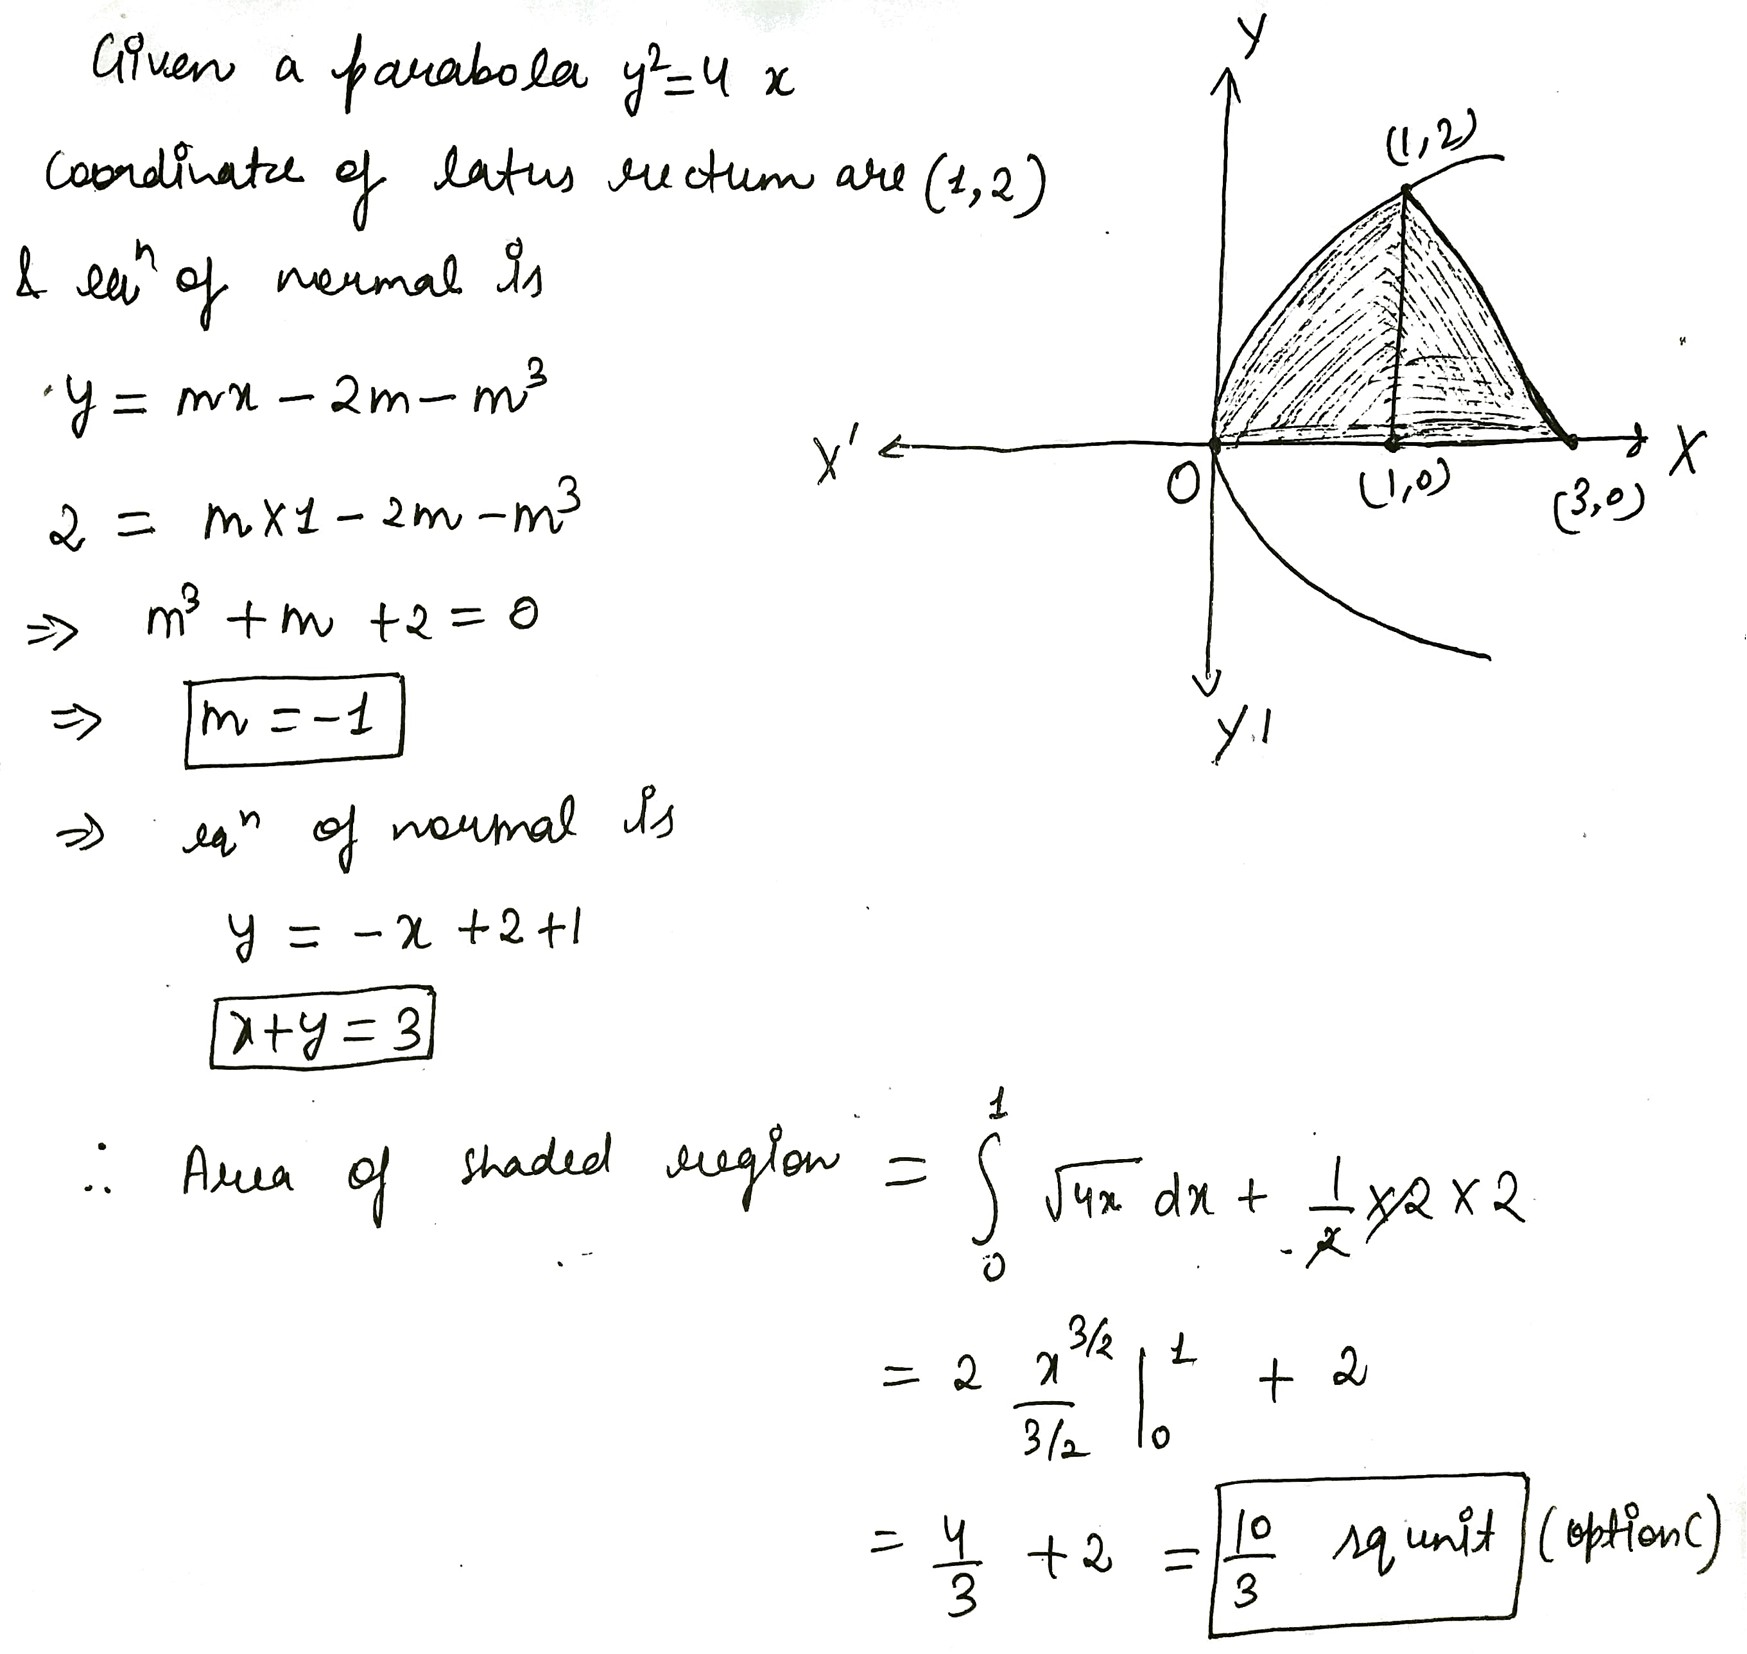 Given a parabola y²=4 x
Coordinate of latus rectum are (1,2)
& eqⁿ of normal is
y = mx - 2m - m³
2 = m×1 - 2m - m³
⇒ m³ + m + 2 = 0
⇒ m = -1
⇒ eqⁿ of normal is
y = -x + 2 + 1
x+y = 3
∴ Area of shaded region = ∫₀¹ √4x dx + 1/2 × 2 × 2
= 2 x^{3/2}/(3/2) |₀¹ + 2
= 4/3 + 2 = 10/3 sq unit (option C)
Y
(1,2)
X' O (1,0) (3,0) X
Y'